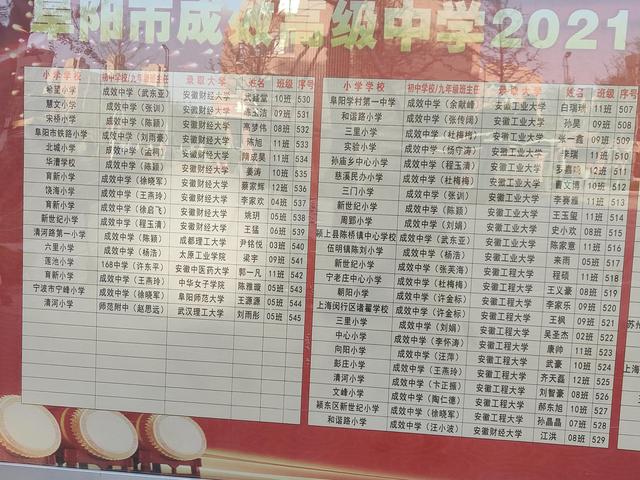 阜阳市成效高级中学2021
小学学校 初中学校/九年级班主任 录取大学 姓名 班级 序号
希望小学 成效中学（武东亚） 安徽财经大学 10班 530
慧文小学 成效中学（张训） 安徽财经大学 09班 531
宋桥小学 成效中学（陈颖） 安徽财经大学 高梦伟 08班 532
阜阳市铁路小学 成效中学（刘雨豪） 安徽财经大学 陈旭 11班 533
北城小学 成效中学（孟柯） 安徽财经大学 隋成昊 11班 534
华清学校 成效中学（陈颖） 安徽财经大学 姜涛 10班 535
育新小学 成效中学（徐晓军） 安徽财经大学 蔡家辉 12班 536
饶海小学 成效中学（王燕玲） 安徽财经大学 李家欢 04班 537
育新小学 成效中学（徐启飞） 安徽财经大学 姚玥 05班 538
新世纪小学 成效中学（程玉清） 安徽财经大学 王猛 06班 539
清河路第一小学 成效中学（陈颖） 成都理工大学 尹铭悦 03班 540
六里小学 成效中学（杨浩） 太原工业学院 梁宇 09班 541
莲池小学 168中学（许东平） 安徽中医药大学 郭一凡 11班 542
育新小学 成效中学（王燕玲） 中华女子学院 陈雅璇 05班 543
宁波市宁峰小学 成效中学（徐晓军） 阜阳师范大学 王源源 05班 544
清河小学 师范附中（赵思远） 武汉理工大学 刘雨彤 05班 545
小学学校 初中学校/九年级班主任 录取大学 姓名 班级 序号
阜阳学村第一中学 成效中学（余献峰） 安徽工业大学 白瑞琪 11班 507
和谐路小学 成效中学（张传阔） 安徽工业大学 孙昊 09班 508
三里小学 成效中学（杜梅梅） 安徽工业大学 张一鑫 09班 509
实验小学 成效中学（杨守涛） 安徽工业大学 李瑞 11班 510
孙庙乡中心小学 成效中学（程玉清） 安徽工业大学 12班 511
慈溪民办小学 成效中学（杜梅梅） 安徽工业大学 曹文博 10班 512
三门小学 成效中学（张训） 安徽工业大学 李赛雅 11班 513
新世纪小学 成效中学（陈颖） 安徽工业大学 王玉玺 11班 514
周郢小学 成效中学（刘娟） 安徽工业大学 史小欢 08班 515
颍上县陈桥镇中心学校 成效中学（武东亚） 安徽工业大学 陈家意 11班 516
伍明镇陈刘小学 成效中学（杨浩） 安徽工业大学 来雨 05班 517
新世纪小学 成效中学（张英海） 安徽工程大学 程硕 11班 518
宁老庄中心小学 成效中学（杜梅梅） 安徽工程大学 王义豪 08班 519
朝阳小学 成效中学（许金标） 安徽工程大学 李家乐 09班 520
上海闵行区诸翟学校 成效中学（许金标） 安徽工程大学 王枫 09班 521
三里小学 成效中学（刘娟） 安徽工程大学 吴圣杰 02班 522
中心小学 成效中学（李怀涛） 安徽工程大学 康帅 11班 523
向阳小学 成效中学（汪萍） 安徽工程大学 武豪 10班 524
彭庄小学 成效中学（王燕玲） 安徽工程大学 齐天磊 12班 525
清河小学 成效中学（卞正振） 安徽工程大学 刘智豪 08班 526
文峰小学 成效中学（陶仁德） 安徽工程大学 郝东旭 10班 527
颍东区新世纪小学 成效中学（徐晓军） 安徽工程大学 孙晶晶 07班 528
和谐路小学 成效中学（汪小波） 安徽财经大学 江洪 08班 529